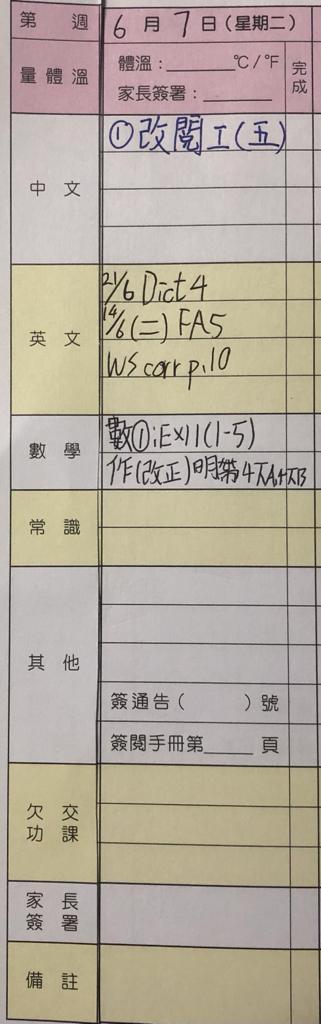 第 週 6月7日(星期二)
量體溫 體溫:______℃/℉ 完成
家長簽署:______
中文 ①改閱工(五)
英文 21/6 Dict 4
14/6(二) FA5
WS corr p.10
數學 數①:Ex11(1-5)
作(改正)明第4
常識
其他
簽通告( )號
簽閱手冊第____頁
欠交功課
家長簽署
備註